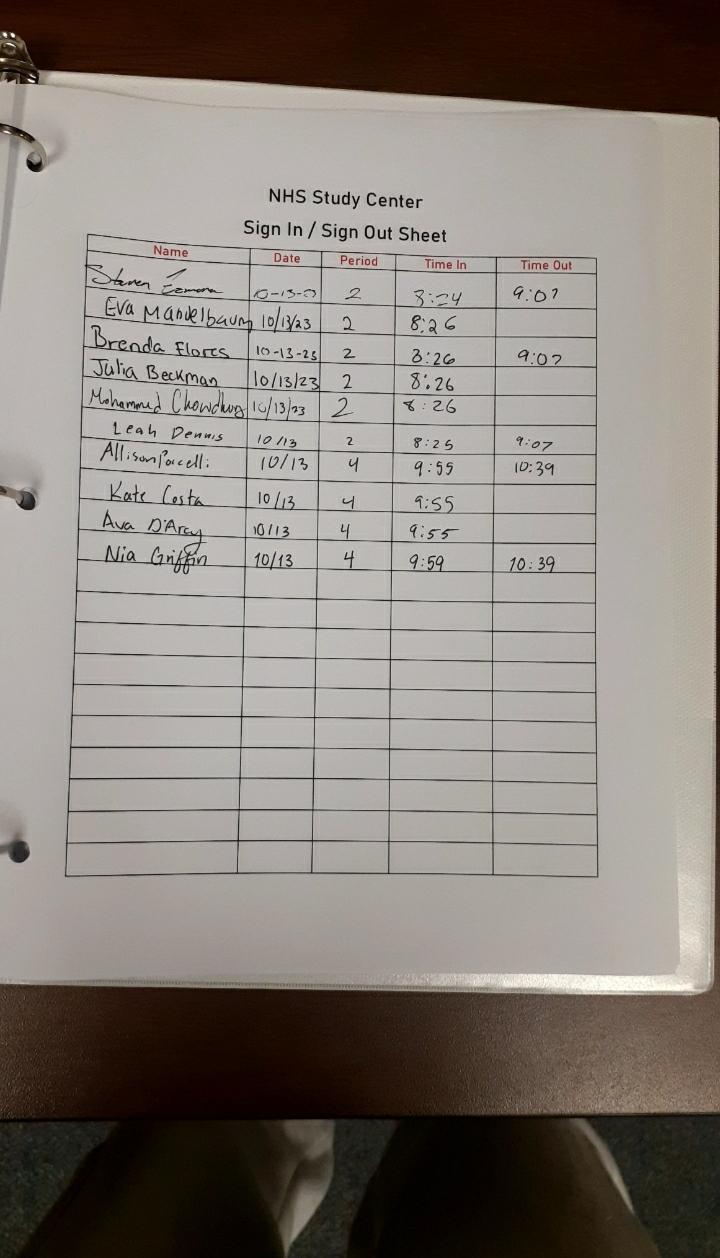 NHS Study Center
Sign In / Sign Out Sheet
Name Date Period Time In Time Out
Steven 2 8:24 9:07
Eva Mandelbaum 10/13/23 2 8:26
Brenda Flores 10-13-23 2 8:26 9:07
Julia Beckman 10/13/23 2 8:26
Mohammed Chowdhury 10/13/23 2 8:26
Leah Dennis 10/13 2 8:25 9:07
Allison Porcelli 10/13 4 9:55 10:39
Kate Costa 10/13 4 9:55
Ava D'Arcy 10/13 4 9:55
Nia Griffin 10/13 4 9:59 10:39